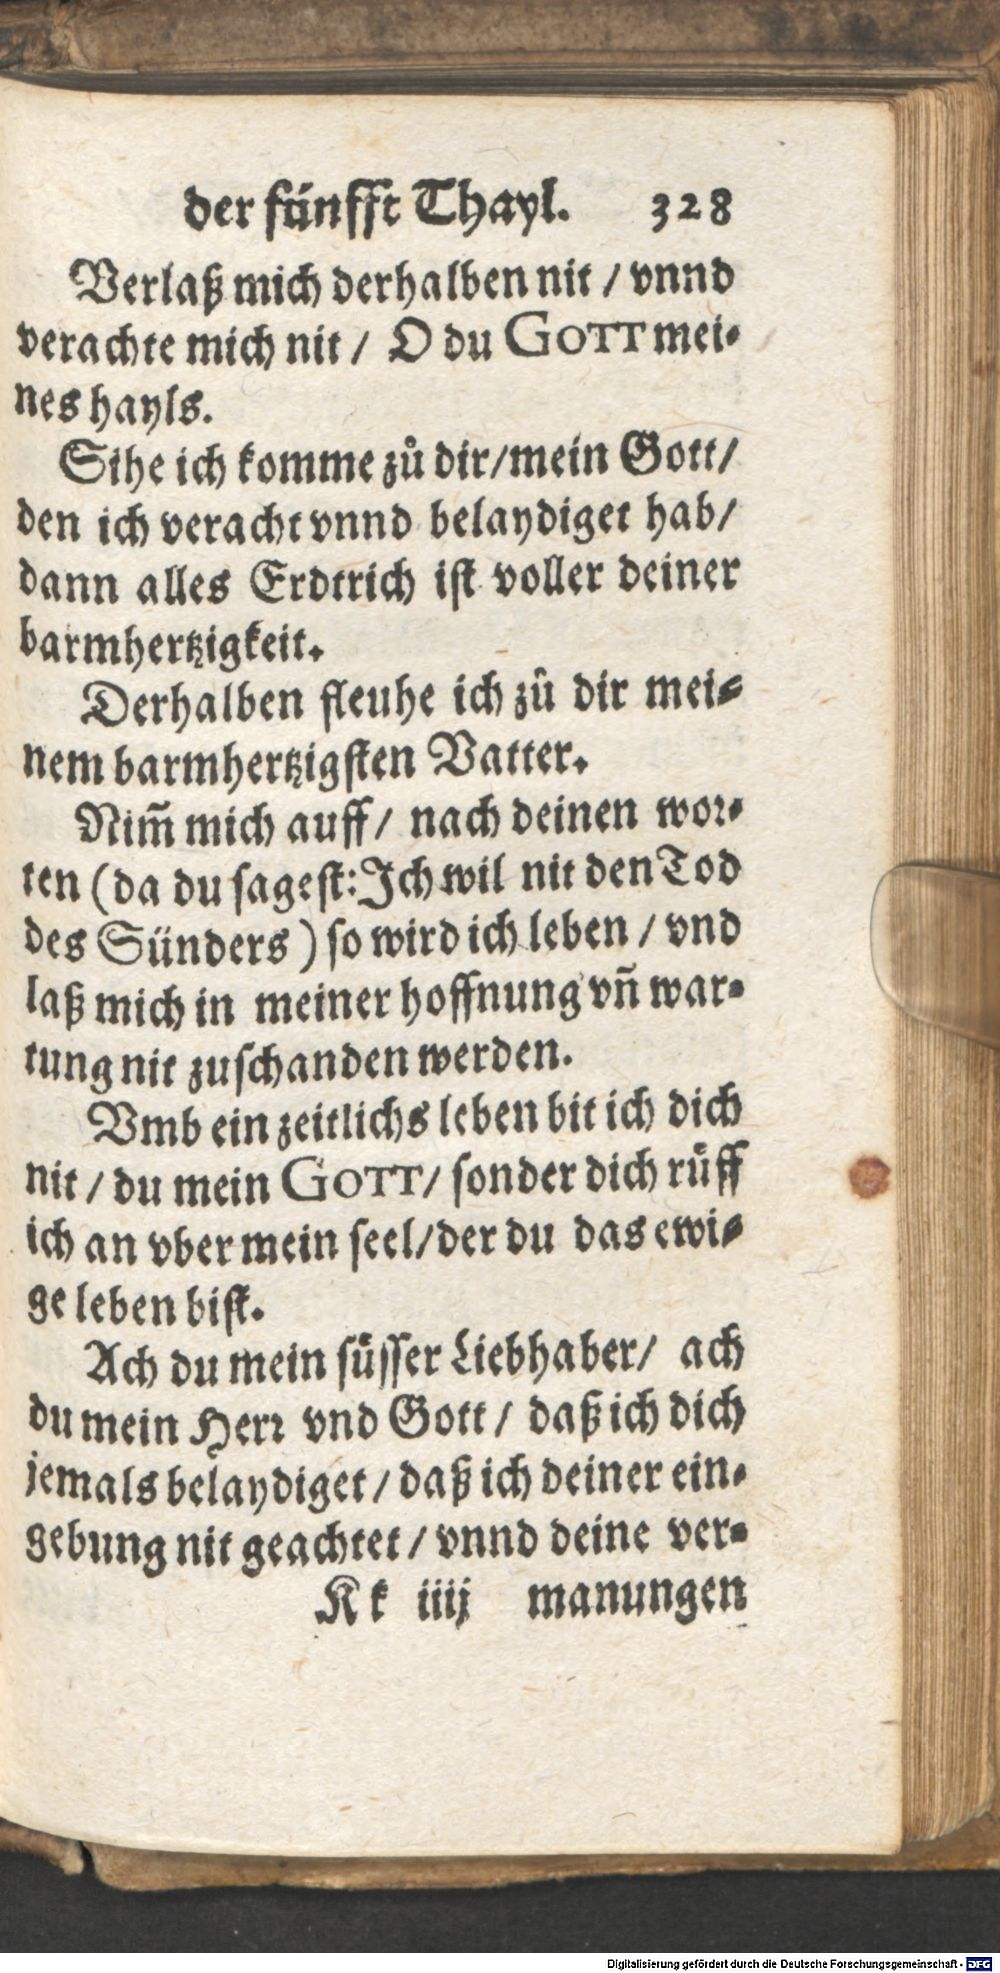 der fünfft Thayl. 328
Verlaß mich derhalben nit / vnnd
verachte mich nit / O du GOTT mei-
nes hayls.
Sihe ich komme zů dir/mein Gott/
den ich veracht vnnd belaydiget hab/
dann alles Erdtrich ist voller deiner
barmhertzigkeit.
Derhalben fleuhe ich zů dir mei-
nem barmhertzigsten Vatter.
Nim̃ mich auff/ nach deinen wor-
ten (da du sagest: Ich wil nit den Tod
des Sünders) so wird ich leben / vnd
laß mich in meiner hoffnung vñ war-
tung nit zuschanden werden.
Vmb ein zeitlichs leben bit ich dich
nit / du mein GOTT/ sonder dich růff
ich an vber mein seel/der du das ewi-
ge leben bist.
Ach du mein süsser Liebhaber/ ach
du mein Herr vnd Gott / daß ich dich
jemals belaydiget / daß ich deiner ein-
gebung nit geachtet / vnnd deine ver-
Kk iiij manungen
Digitalisierung gefördert durch die Deutsche Forschungsgemeinschaft - DFG